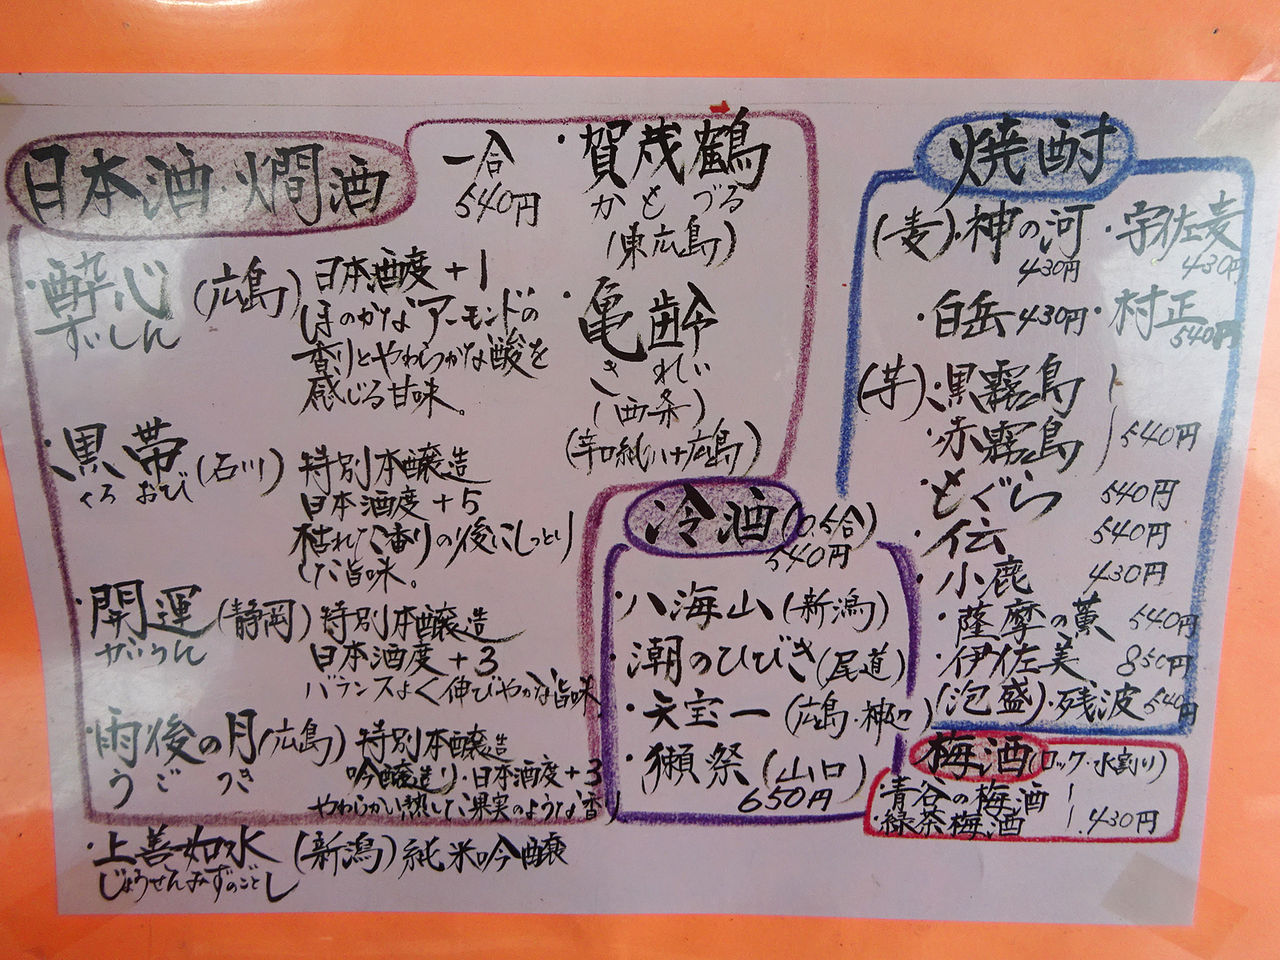 日本酒・燗酒
一合
540円
・酔心(広島)
ずいしん
日本酒度+1
ほのかなアーモンドの
香りとやわらかな酸を
感じる甘味。
・黒帯(石川)
くろおび
特別本醸造
日本酒度+5
枯れた香りの後にしっとり
した旨味。
・開運(静岡)
がいうん
特別本醸造
日本酒度+3
バランスよく伸びやかな旨味
・雨後の月(広島)
うごつき
特別本醸造
吟醸造り・日本酒度+3
やわらかい熟した果実のような香り
・上善如水(新潟)純米吟醸
じょうぜんみずのごとし
・賀茂鶴
かもづる
(東広島)
・亀齢
きれい
(西条)
(辛口純八十広島)
冷酒(0.5合)
540円
・八海山(新潟)
・潮のひびき(尾道)
・天宝一(広島・神辺)
・獺祭(山口)
650円
焼酎
(麦)・神の河
430円
・宇佐麦
430円
・白岳430円
・村正
540円
(芋)・黒霧島
・赤霧島
540円
・もぐら 540円
・伝 540円
・小鹿 430円
・薩摩の薫 540円
・伊佐美 850円
(泡盛)・残波 540円
梅酒(ロック・水割り)
・青谷の梅酒
・緑茶梅酒
430円